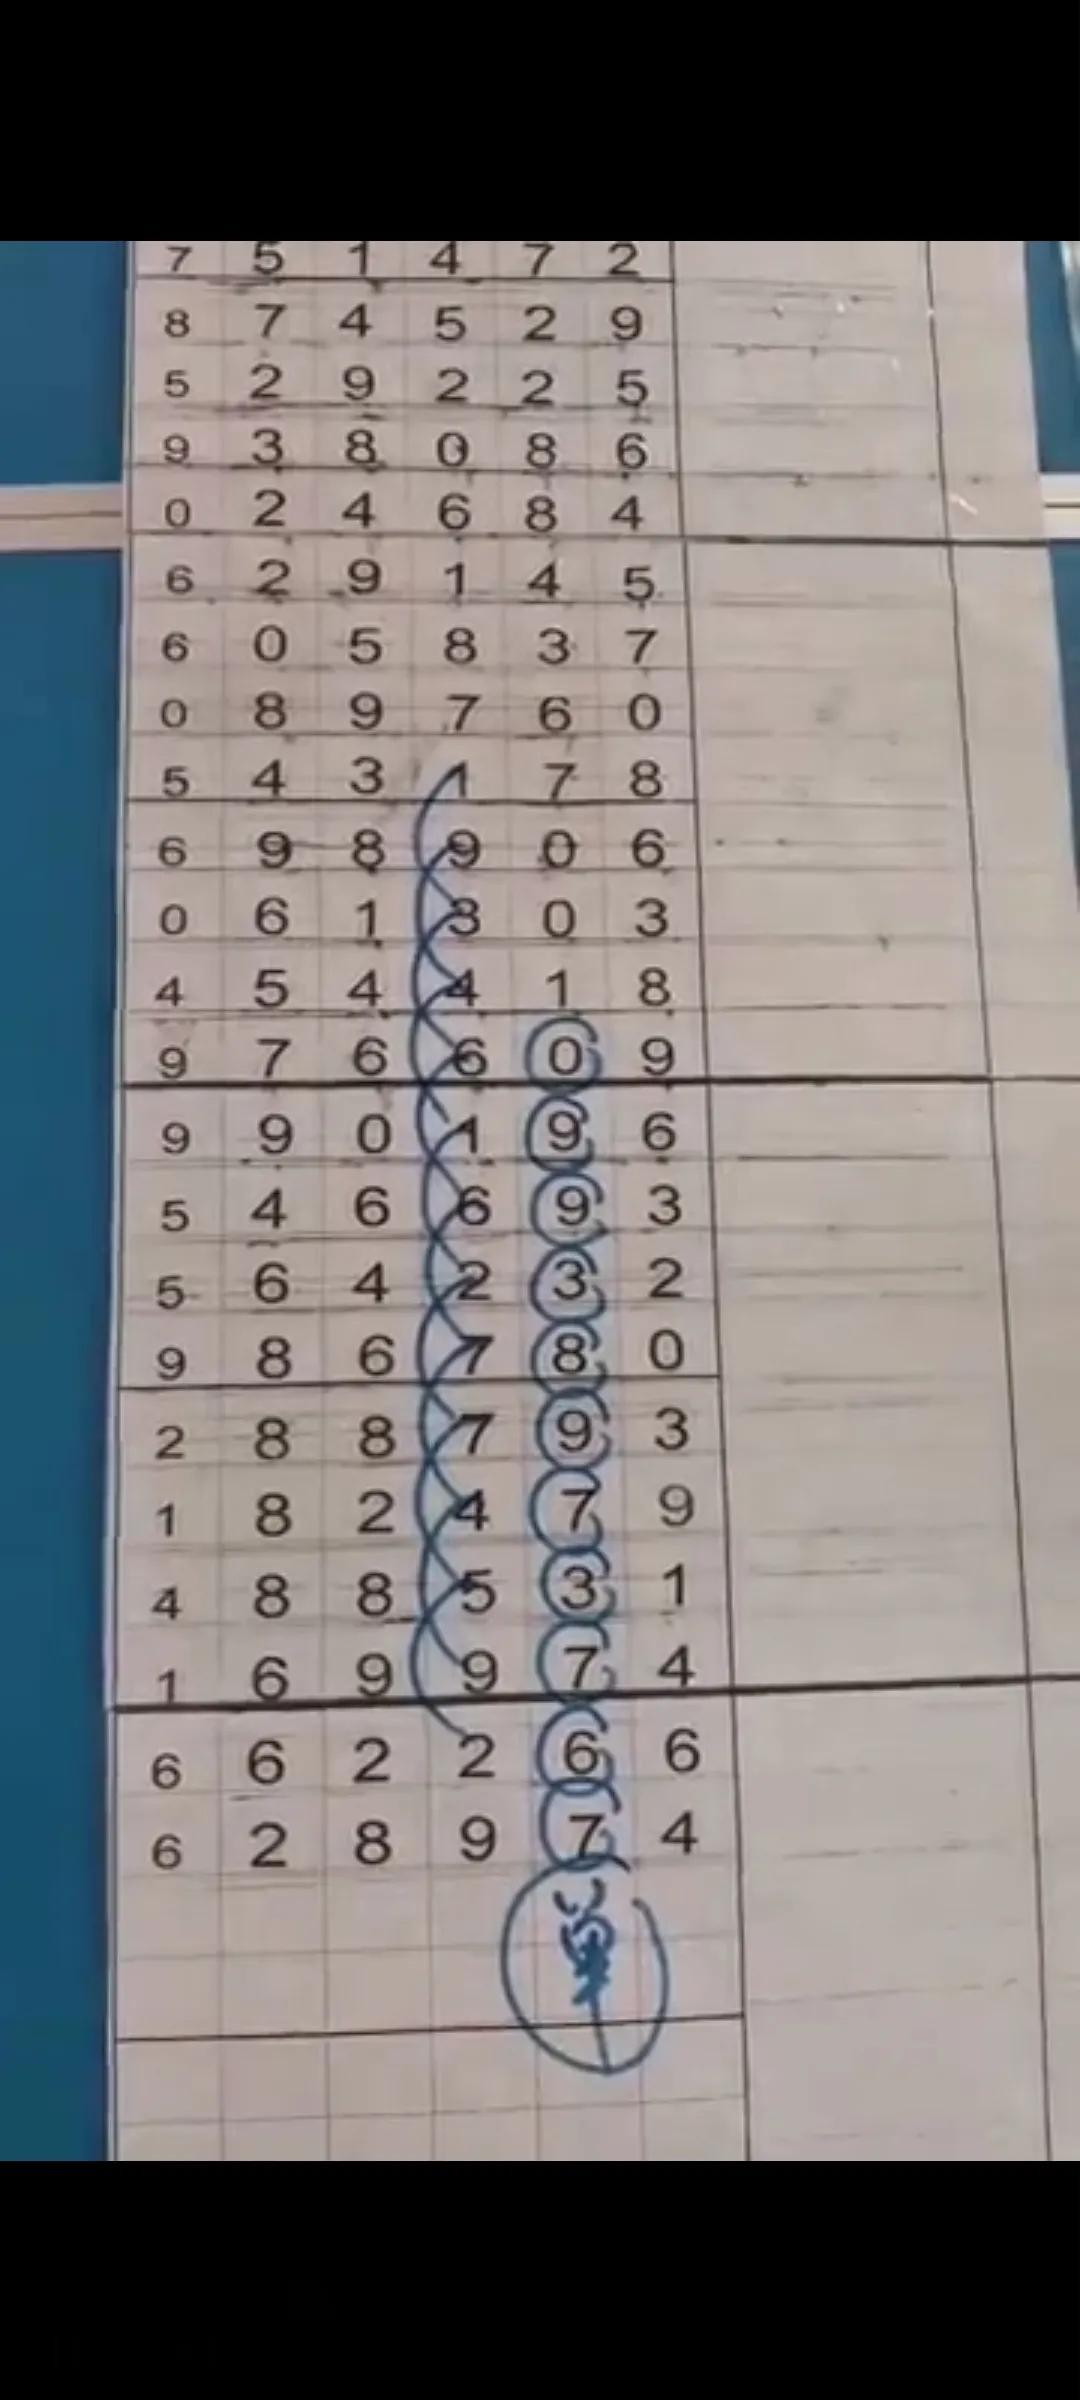 7 5 1 4 7 2
8 7 4 5 2 9
5 2 9 2 2 5
9 3 8 0 8 6
0 2 4 6 8 4
6 2 9 1 4 5
6 0 5 8 3 7
0 8 9 7 6 0
5 4 3 1 7 8
6 9 8 9 0 6
0 6 1 3 0 3
4 5 4 4 1 8
9 7 6 6 0 9
9 9 0 1 9 6
5 4 6 6 9 3
5 6 4 2 3 2
9 8 6 7 8 0
2 8 8 7 9 3
1 8 2 4 7 9
4 8 8 5 3 1
1 6 9 9 7 4
6 6 2 2 6 6
6 2 8 9 7 4